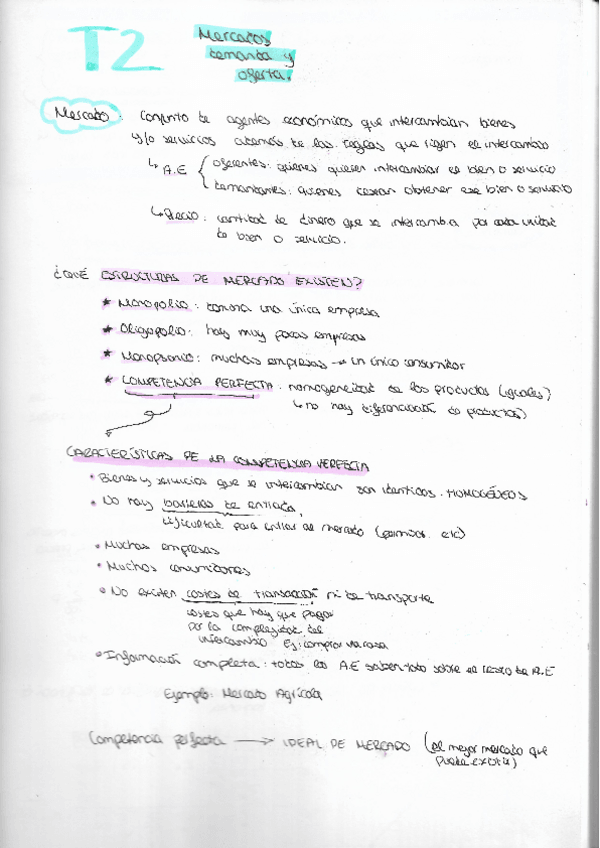 T2
Mercados
demanda y
oferta.
Mercado: Conjunto de agentes económicos que intercambian bienes
y/o servicios además de las reglas que rigen el intercambio
↳ A.E { oferentes: quienes quieren intercambiar el bien o servicio
demandantes: quienes desean obtener ese bien o servicio
↳ Precio: cantidad de dinero que se intercambia por cada unidad
de bien o servicio.
¿QUÉ ESTRUCTURAS DE MERCADO EXISTEN?
* Monopolio: domina una única empresa
* Oligopolio: hay muy pocas empresas
* Monopsonio: muchas empresas → un único consumidor
* COMPETENCIA PERFECTA: homogeneidad de los productos (iguales)
↳ no hay diferenciación de productos)
CARACTERÍSTICAS DE LA COMPETENCIA PERFECTA
• Bienes y servicios que se intercambian son idénticos. HOMOGÉNEOS
• No hay barreras de entrada,
dificultad para entrar al mercado (permisos. etc)
• Muchas empresas
• Muchos consumidores
• No existen costes de transacción ni de transporte
costes que hay que pagar
por la complejidad del
intercambio Ej: comprar una casa
• Información completa: todos los A.E saben todo sobre el resto de A.E
Ejemplo: Mercado Agrícola
Competencia perfecta → IDEAL DE MERCADO (el mejor mercado que
puede existir)